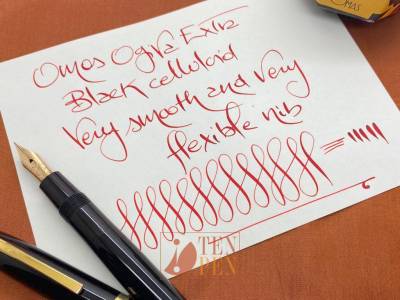 Omas Ogiva Extra
Black celluloid
Very smooth and very
flexible nib
OMAS
TEN
PEN